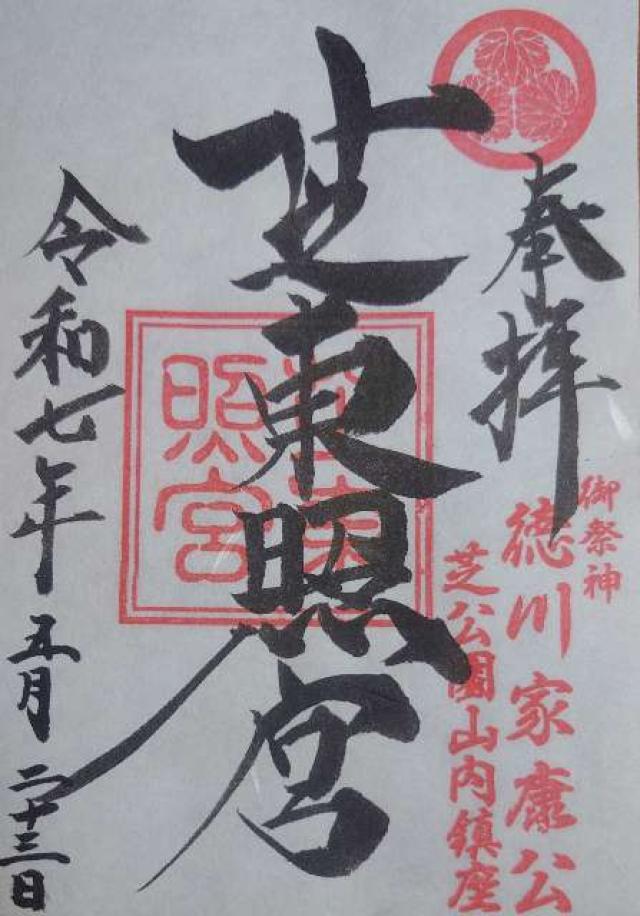 奉拝
御祭神
徳川家康公
芝公園山内鎮座
芝東照宮
芝東照宮
令和七年五月二十三日